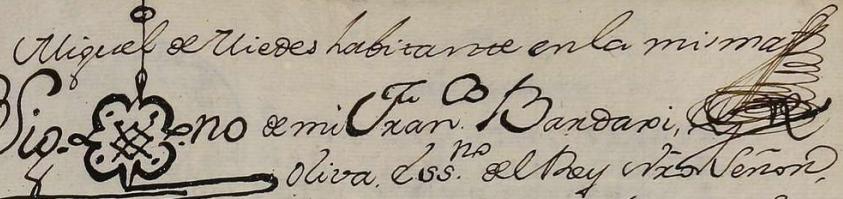 Miguel de Uiedes habitante en la misma
Sig-no de mi Fran.co Bardaxi,
Oliva, Ess.no del Rey Nro Señor,